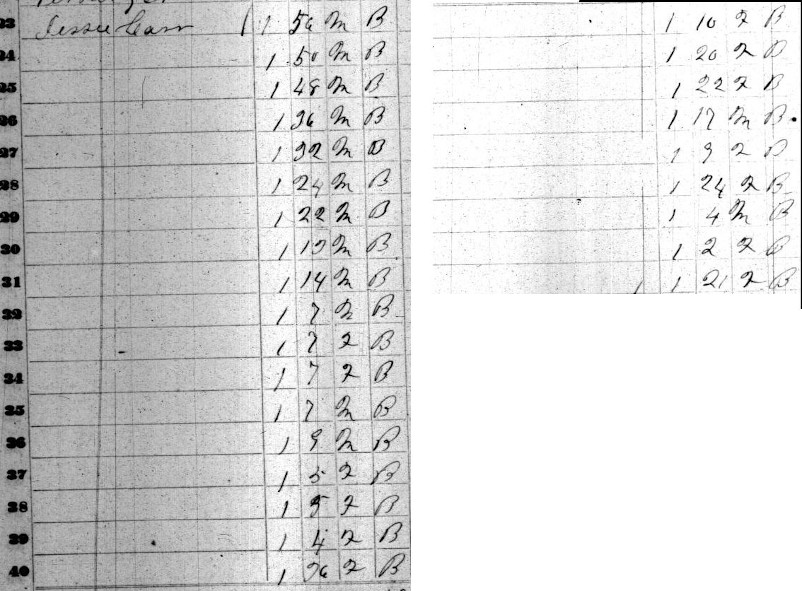 23 Jessee Carr 1 1 50 M B
24 1 50 M B
25 1 48 M B
26 1 36 M B
27 1 32 M B
28 1 24 M B
29 1 22 M B
30 1 M B
31 1 14 M B
32 1 7 M B
33 1 7 F B
34 1 7 F B
35 1 7 M B
36 1 9 M B
37 1 5 F B
38 1 5 F B
39 1 4 F B
40 1 36 F B
1 10 F B
1 20 F B
1 22 F B
1 17 M B
1 9 F B
1 24 F B
1 4 M B
1 2 F B
1 1 21 F B